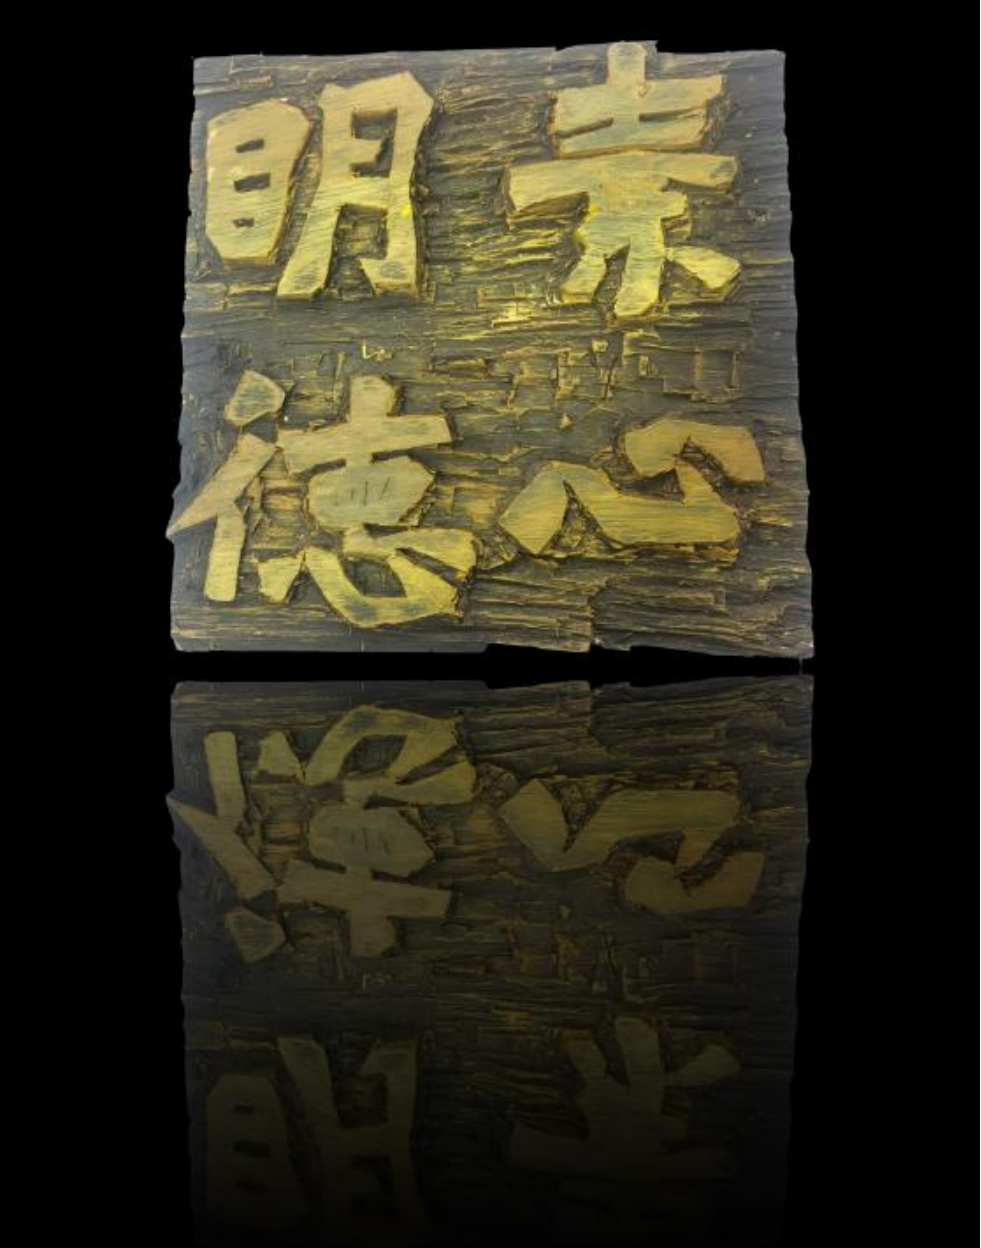 素心
明德